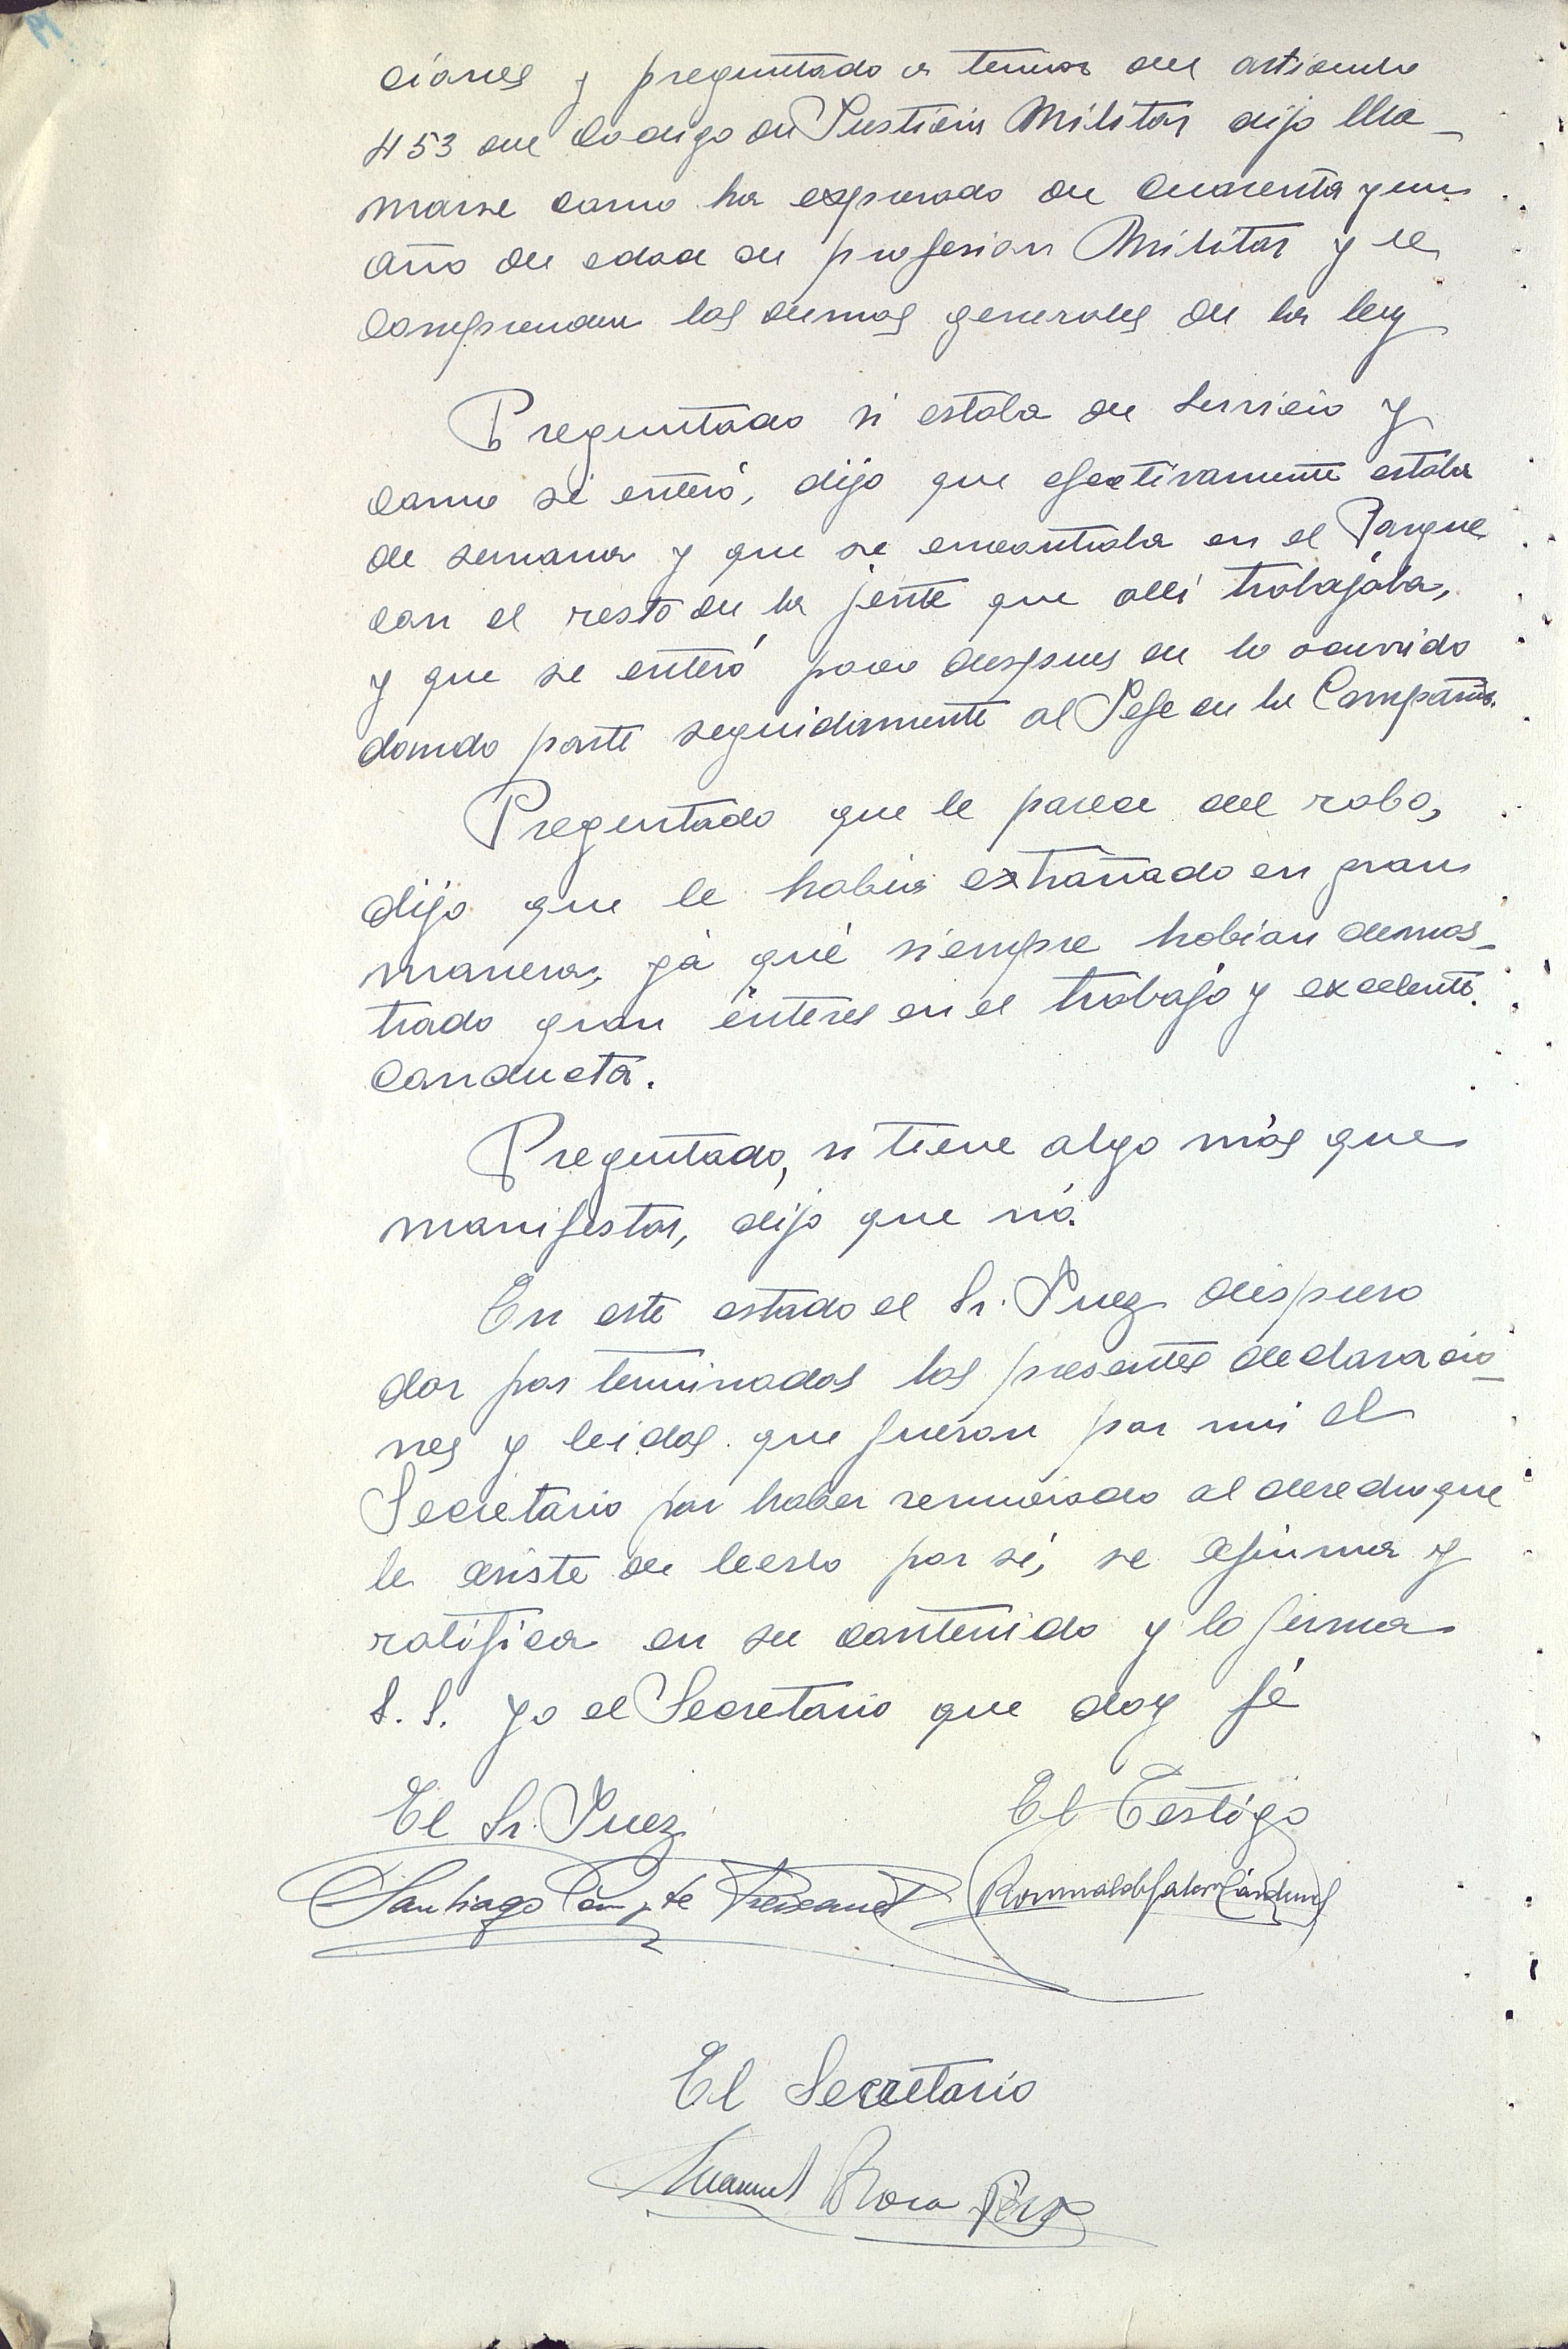 ciones y preguntado a tenor del articulo
453 del Codigo de Justicia Militar dijo lla-
marse como ha expresado de cuarenta y un
año de edad de profesion Militar y le
comprenden las demas generales de la ley
Preguntado si estaba de servicio y
como se enteró, dijo que efectivamente estaba
de semana y que se encontraba en el Parque
con el resto de la jente que allí trabajába,
y que se enteró poco despues de lo ocurrido
dando parte seguidamente al Jefe de la Compañia.
Preguntado que le parece del robo,
dijo que le habia extrañado en gran
manera, yá qué siempre habian demos-
trado gran ínteres en el trabajo y excelente
conducta.
Preguntado, si tiene algo más que
manifestar, dijo que nó.
En este estado el Sr. Juez dispuso
dar por terminadas las presentes declaracio-
nes y leidas que fueron por mi el
Secretario por haber renunciado al derecho que
le asiste de leerlo por sí, se afirma y
ratifica en su contenido y lo firma
S. S. yo el Secretario que doy fé
El Sr. Juez
El Testigo
Santiago
Romualdo
El Secretario
Manuel Roca